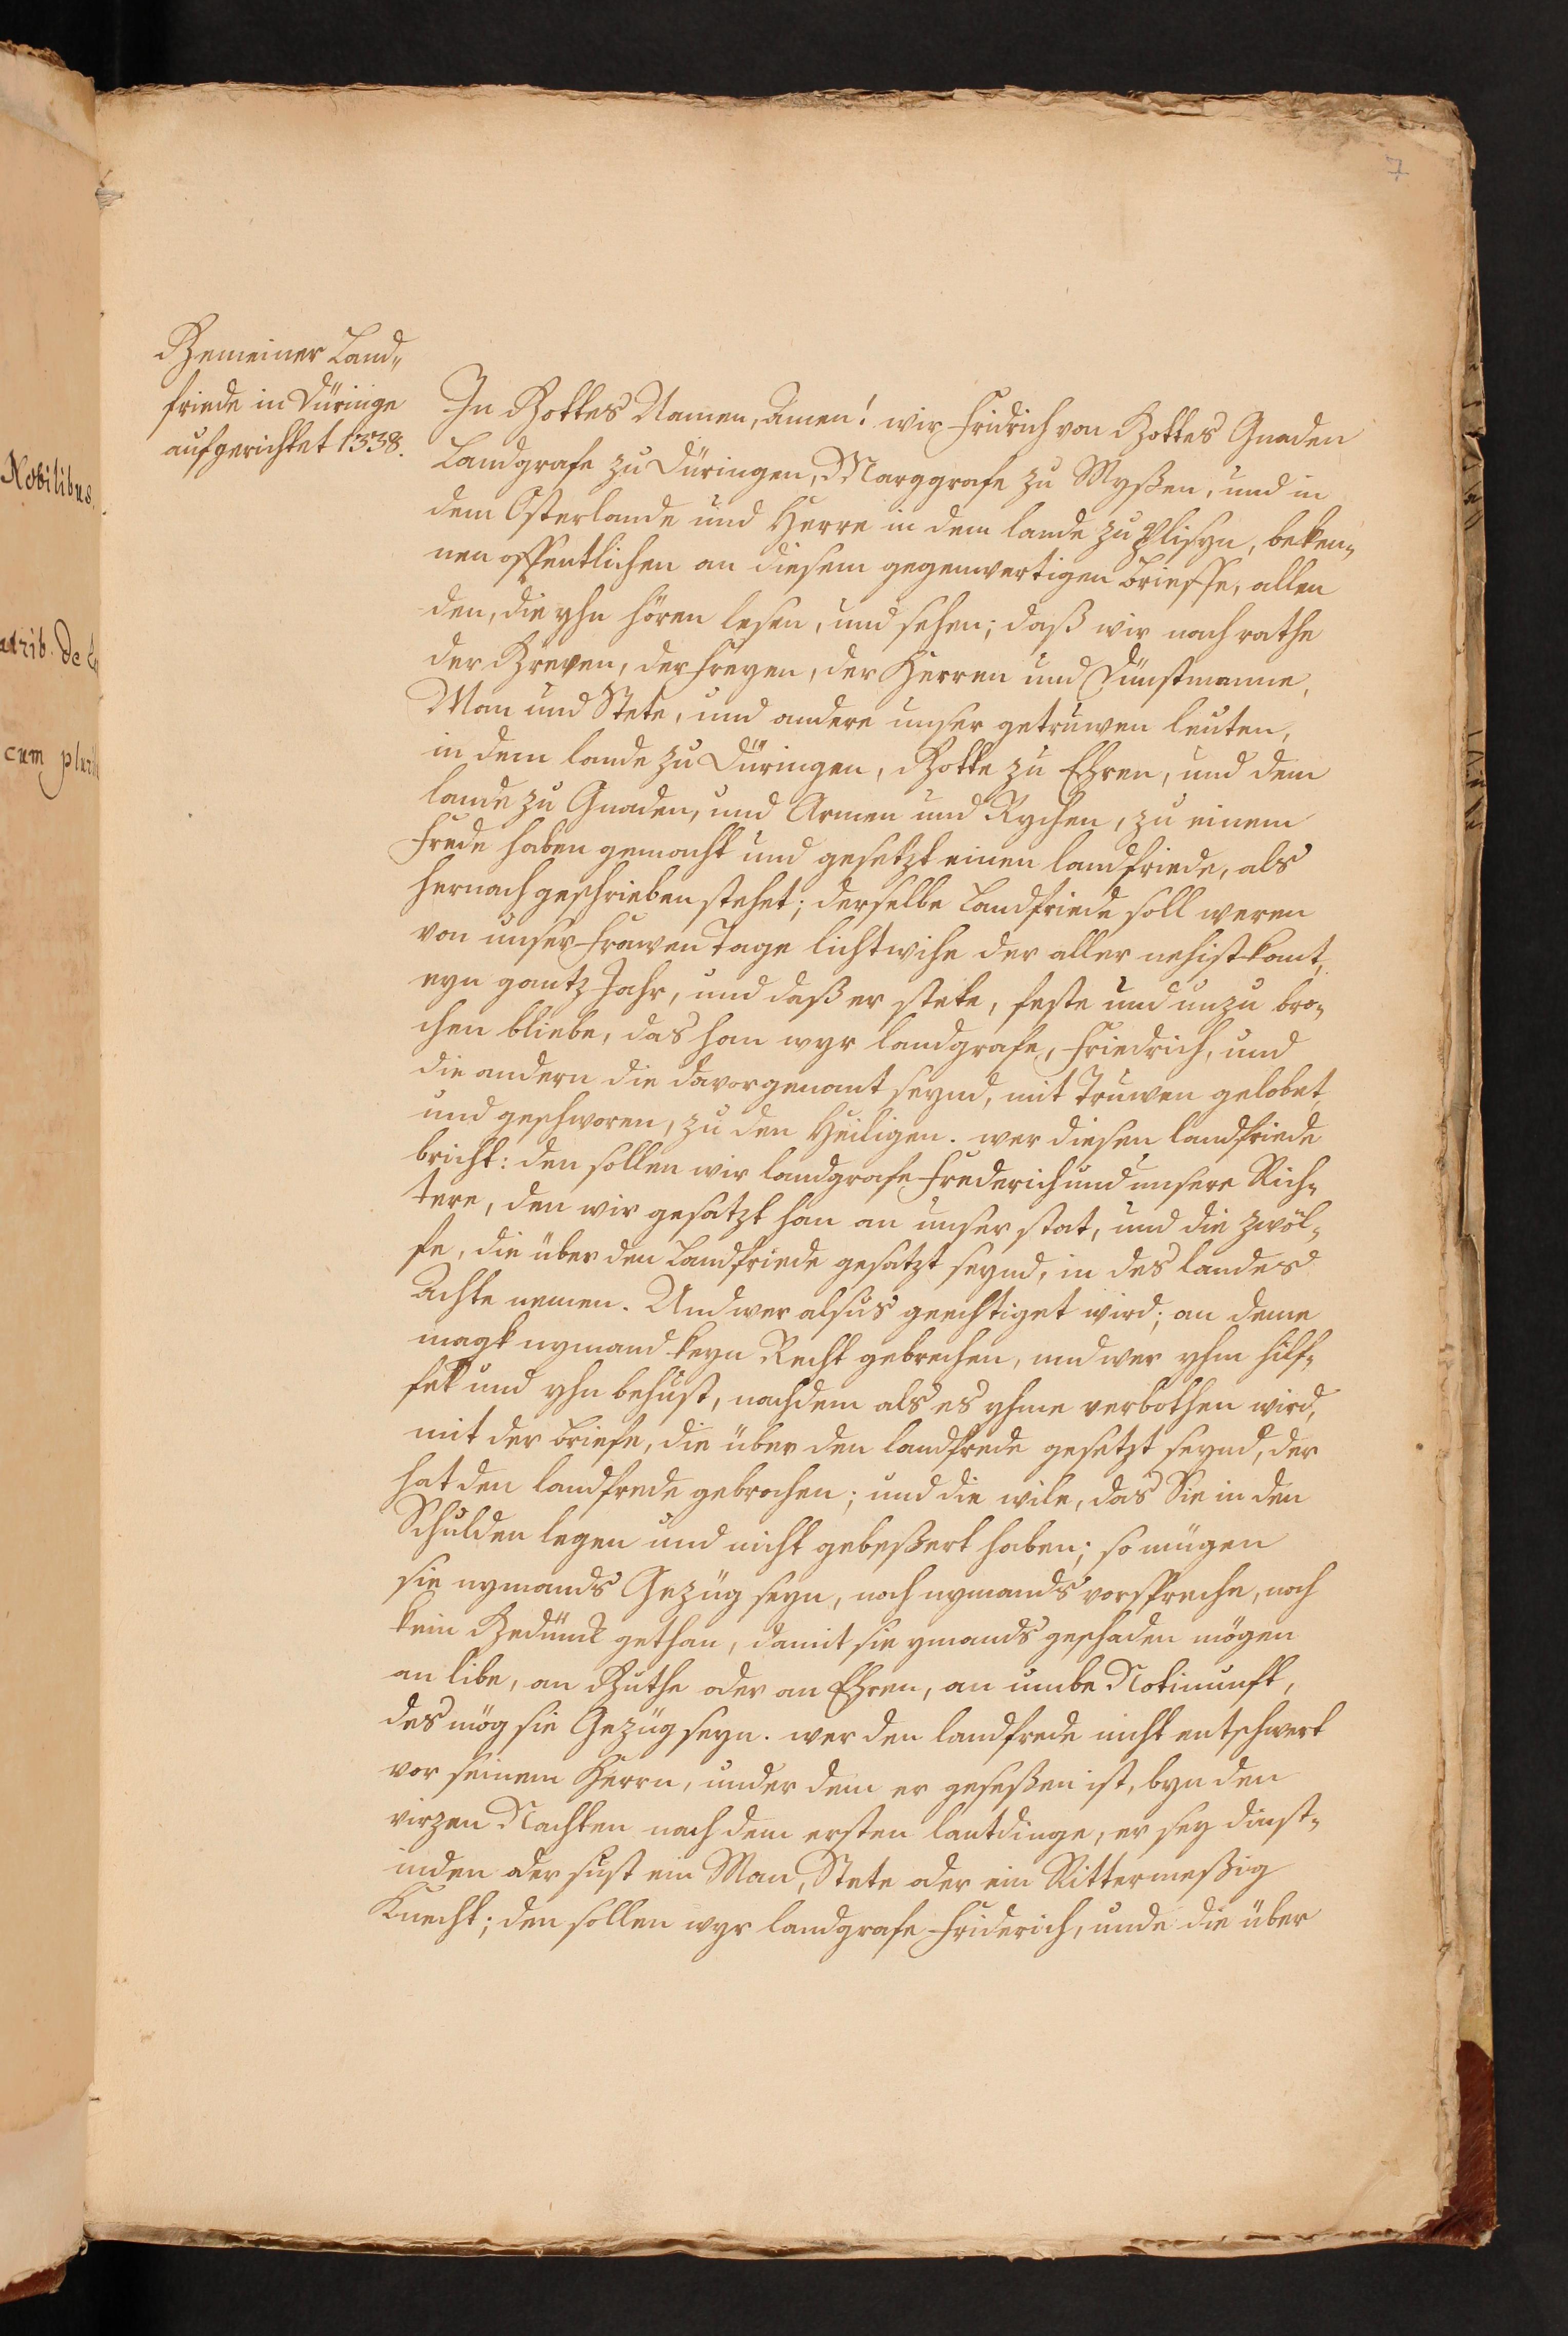 7
Gemeiner Land„
friede in Düringe
aufgerichtet 1338.
Nobilibus
de
cum
In Gottes Namen, Amen! wir Fridrich von Gottes Gnaden
Landgrafe zu Düringen, Marggrafe zu Myßen, und in
dem Osterlande und Herre in dem lande zu Plisyn, beken„
nen offentlichen an diesem gegenwertigen brieffe, allen
den, die yhn hören lesen, und sehen; daß wir nach rathe
der Greven, der freyen, der Herren und Dinstmanne,
Man und Stete, und andere unser getruwen leuten,
in dem lande zu Düringen, Gotte zu Ehren, und dem
lande zu Gnaden, und Armen und Rychen, zu einem
frede haben gemacht und gesetzt einen landfriede, als
hernach geschrieben stehet; derselbe Landfriede soll weren
von unser frawen Tage lichtwihe der aller nehist komt,
eyn gantz Jahr, und daß er stete, feste und unzu bro„
chen bliebe, das han wyr landgrafe, Friedrich, und
die andern die davorgenant seynd, mit Truwen gelobet
und geschworen, zu den Heiligen. wer diesen landfriede
bricht: den sollen wir landgrafe Frederich und unsere Rich„
tere, den wir gesatzt han an unser stat, und die zwöl„
fe, die über den Landfriede gesatzt seynd, in des landes
Achte nemen. Und wer alsus geechtiget wird; an deme
magk nymand keyn Recht gebrechen, und wer yhm hilf„
fet und yhn behust, nachdem als es yhme verbothen wird,
mit der briefe, die über den landfrede gesetzt seynd, der
hat den landfrede gebrochen; und die wile, das Sie in den
Schulden legen und nicht gebeßert haben; so mügen
sie nymands Gezüg seyn, noch nymands vorspreche, noch
kein Gedünck gethan, damit sie ymands geschaden mögen
an libe, an Guthe oder an Ehren, an umbe Notinunft,
des mög sie Gezüg seyn. wer den landfrede nicht entschwert
vor seinem Herrn, under dem er geseßen ist, byn den
virzen Nachten nach dem ersten lantdinge, er sey dinst„
inden oder sust ein Man, Stete oder ein Rittermeßig
Knecht; den sollen wyr landgrafe Friderich, unde die über